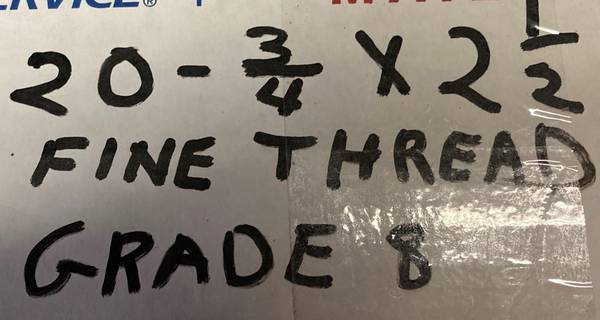 SERVICE®
20-3/4 X 2 1/2
FINE THREAD
GRADE 8